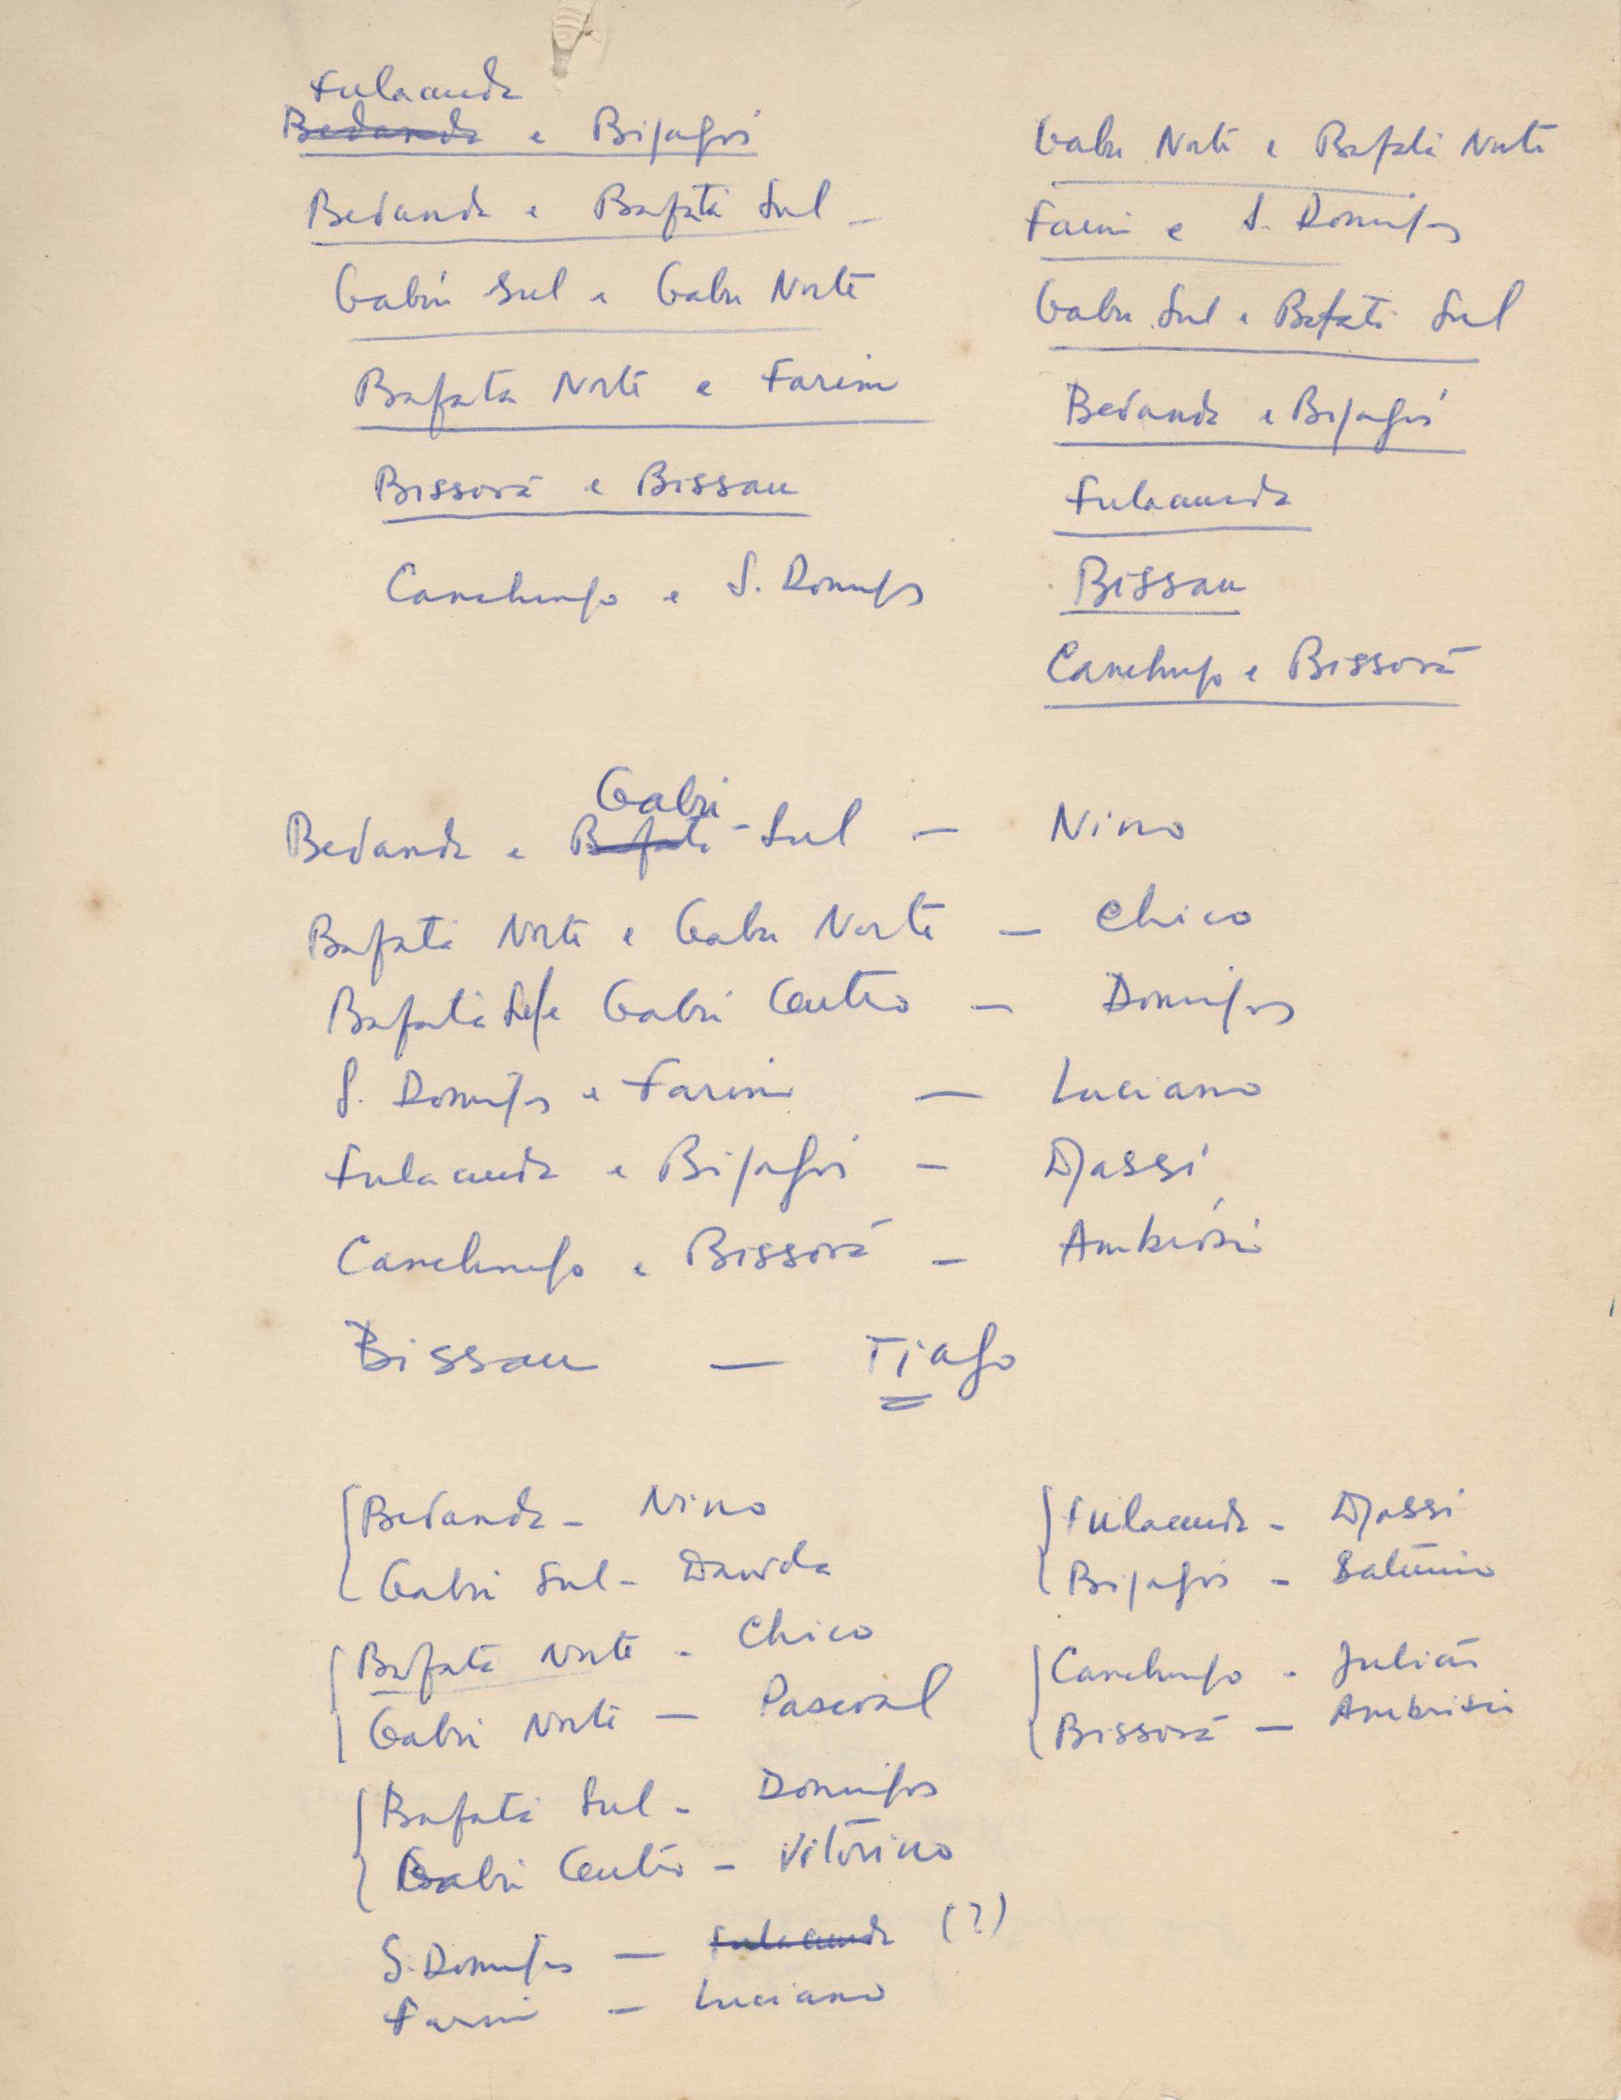 Fulacunda
Bedanda e Bijagós
Bedanda e Bafatá Sul -
Gabú Sul e Gabu Norte
Bafata Norte e Farim
Bissorã e Bissau
Canchungo e S. Domingos
Gabu Norte e Bafatá Norte
Farim e S. Domingos
Gabu Sul e Bafatá Sul
Bedanda e Bijagós
Fulacunda
Bissau
Canchungo e Bissorã
Gabú
Bedanda e Bafatá - Sul — Nino
Bafatá Norte e Gabu Norte — Chico
Bafatá Sul e Gabú Centro — Domingos
S. Domingos e Farim — Luciano
Fulacunda e Bijagós — Djassi
Canchungo e Bissorã — Ambrósio
Bissau — Tiago
Bedanda - Nino
Gabú Sul - Dauda
Bafatá Norte - Chico
Gabú Norte — Pascoal
Bafatá Sul - Domingos
Gabú Centro - Vitorino
S. Domingos — Fulacunda (?)
Farim — Luciano
Fulacunda - Djassi
Bijagós - Satúnino
Canchungo - Julião
Bissorã — Ambrósio